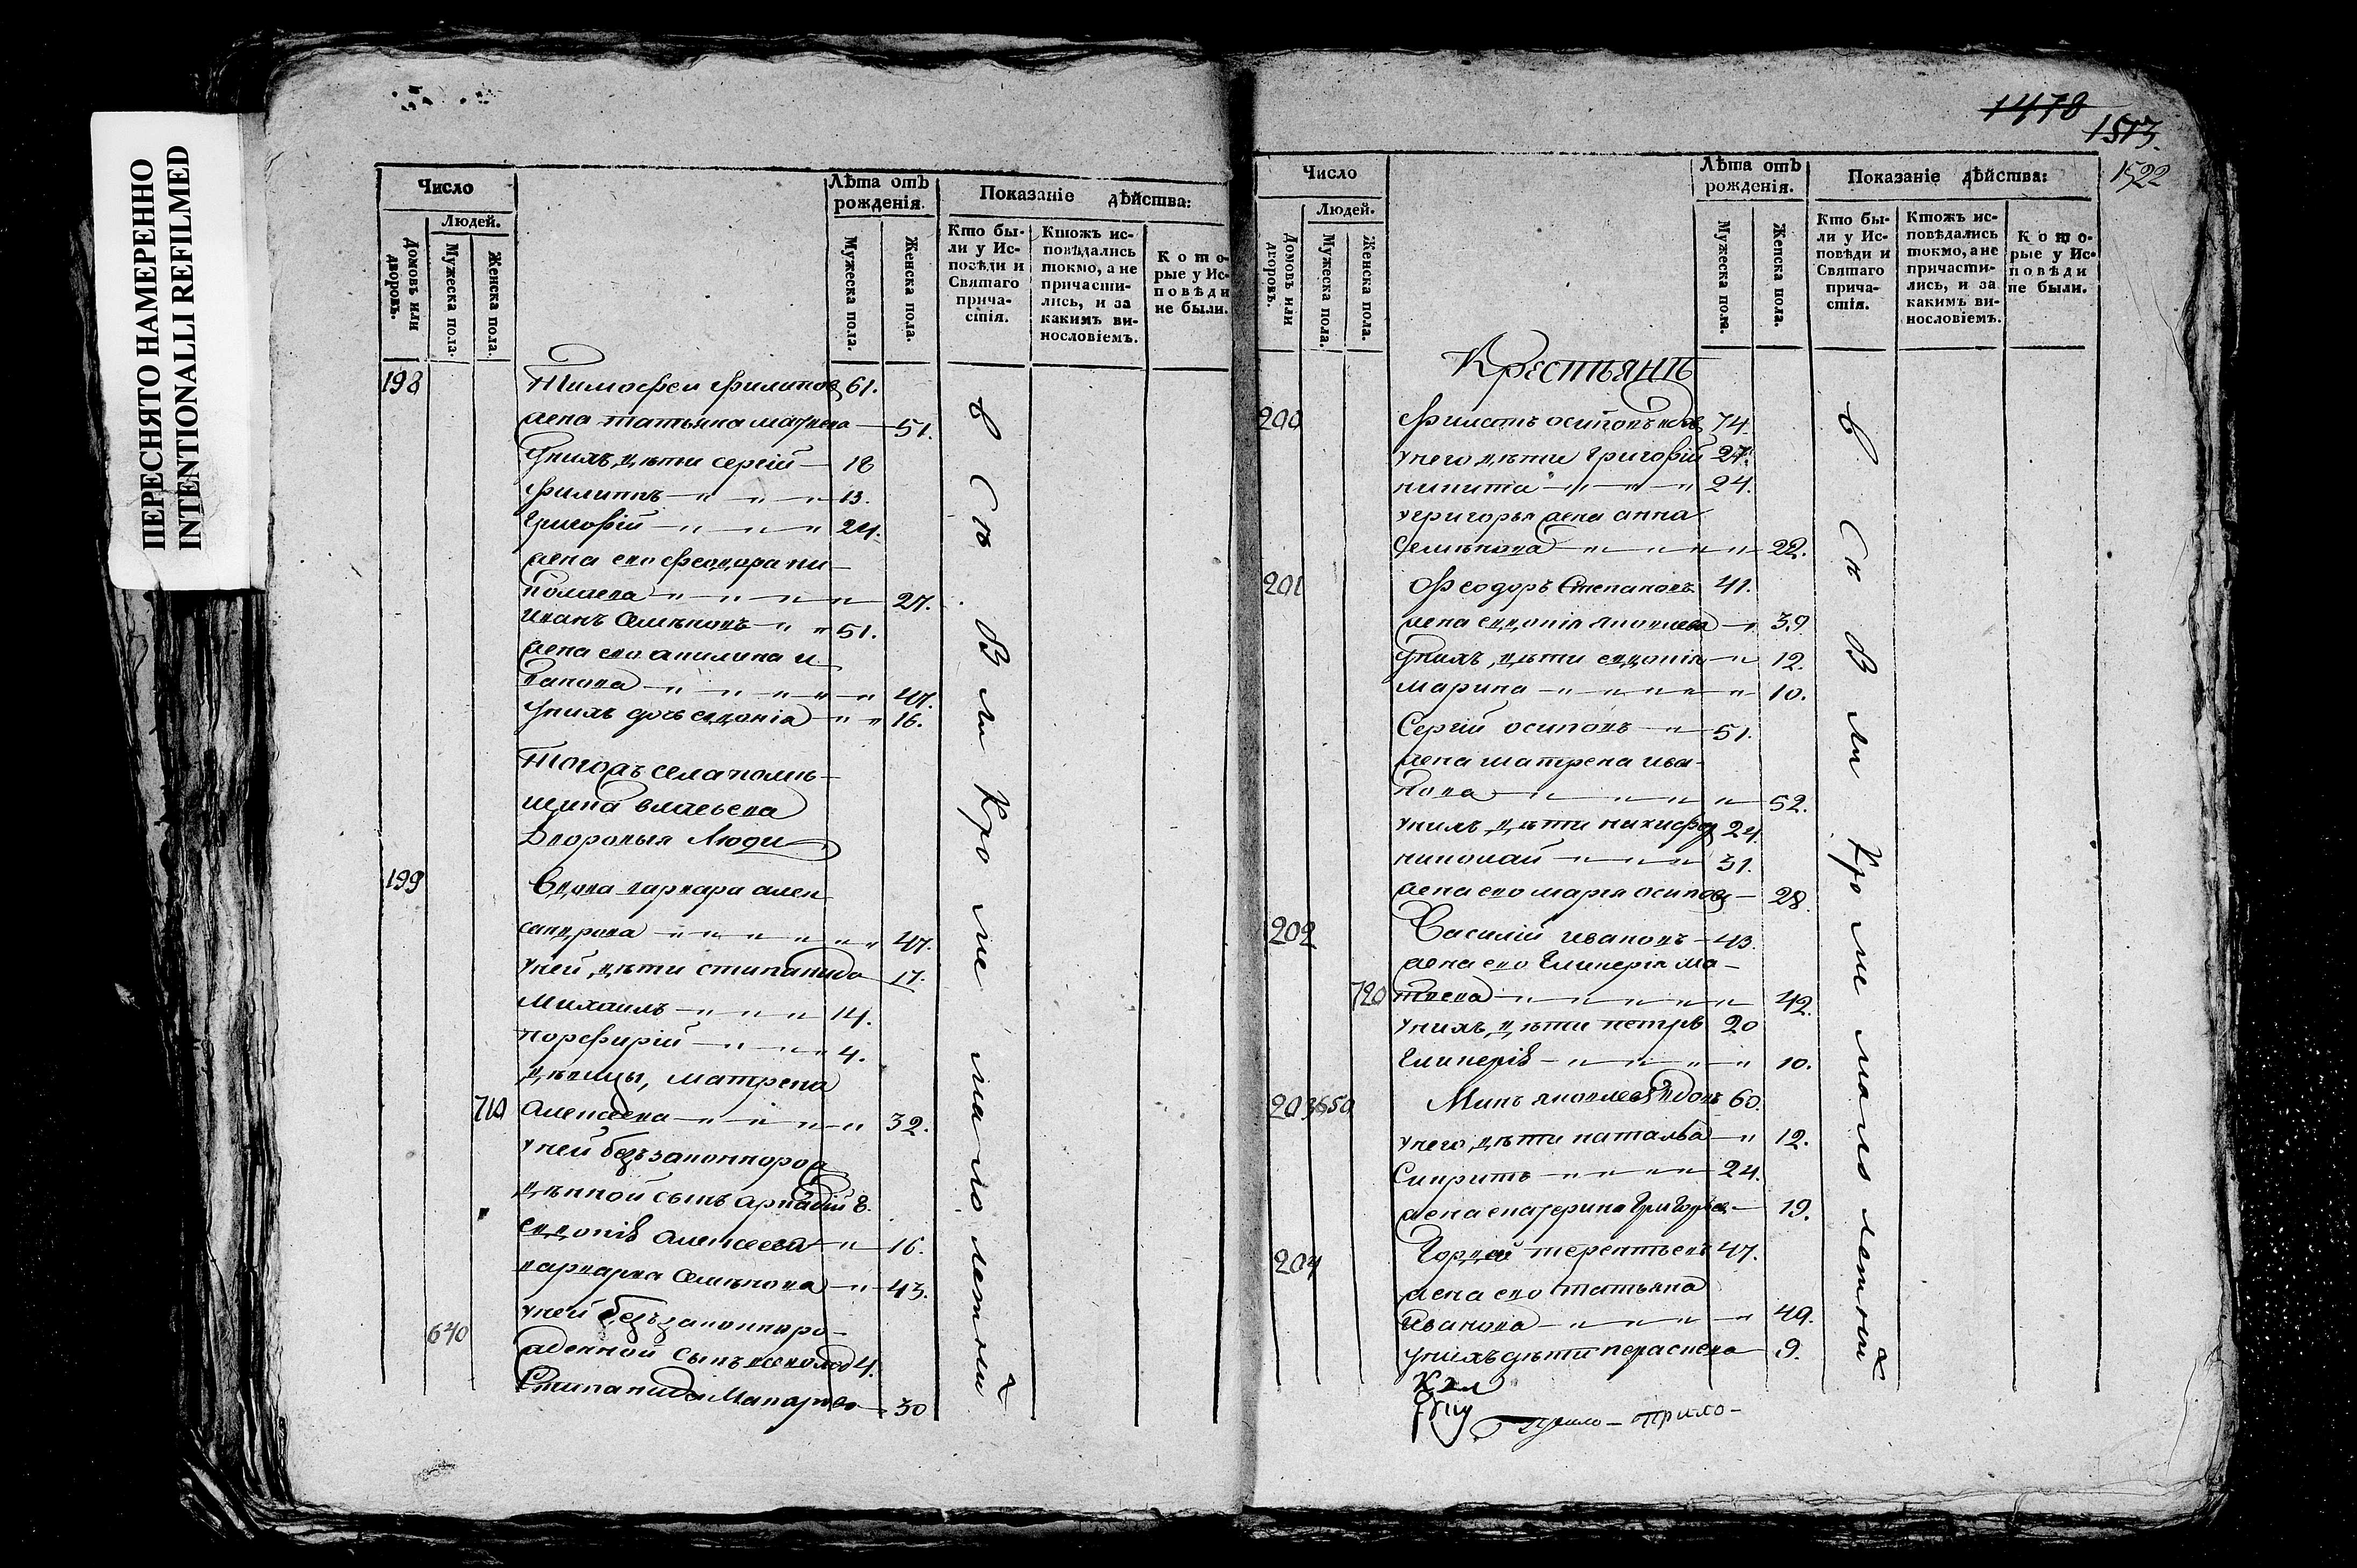 ПЕРЕСНЯТО НАМЕРЕННО
INTENTIONALLI REFILMED
Число
Людей.
Домовъ или дворовъ.
Мужеска пола.
Женска пола.
Лѣта отъ рожденія.
Мужеска пола.
Женска пола.
Показаніе дѣйства:
Кто бы-
ли у Ис-
повѣди и
Святаго
прича-
стія.
Ктожъ ис-
повѣдались
токмо, а не
причасти-
лись, и за
какимъ ви-
нословіемъ.
Кото-
рые у Ис-
повѣди
не были.
198 Тимофеи филипов 61.
жена татьяна 51.
Унихъ дѣти сергій 18
филиппъ 13.
Григорій 24.
жена ево феодора ни-
колаева 27.
Иванъ Семѣновъ 51.
жена ево акилина и-
ванова 47.
Унихъ дочь евдокія 16.
Тогожъ села
Дворовыя Люди
199 Вдова варвара алек-
сандрова 47.
Уней дѣти стипанида 17.
Михаилъ 14.
порефирій 4.
дѣвицы, матрена
710 Алексѣева 32.
Уней безъзаконнорож
дѣнной сынъ аркадій 8.
евдокія Алексеева 16.
варвара Семѣнова 43.
640 Уней безъзаконноро-
жденной сынъ 4.
Стипанида Макарова 30
всѣ были кромѣ малолетнии
1478
1513.
1522
Число
Людей.
Домовъ или дворовъ.
Мужеска пола.
Женска пола.
Лѣта отъ рожденія.
Мужеска пола.
Женска пола.
Показаніе дѣйства:
Кто бы-
ли у Ис-
повѣди и
Святаго
прича-
стія.
Ктожъ ис-
повѣдались
токмо, а не
причасти-
лись, и за
какимъ ви-
нословіемъ.
Кото-
рые у Ис-
повѣди
не были.
Крестьянъ
200 Филатъ осиповъ 74.
Унего дѣти Григорій 27.
никита 24.
Угригорья жена анна
Семѣнова 22.
201 Феодоръ Степановъ 41.
жена евдокія яковлева 39
Унихъ дѣти евдокія 12.
марина 10.
Сергій осиповъ 51.
жена матрена ива-
нова 52.
Унихъ дѣти никифор 24.
николай 31.
жена ево марія осипова 28.
202 Василій ивановъ 43.
жена ево Гликерія ма-
720 твеева 42.
Унихъ дѣти петръ 20
Гликерія 10.
203 650 яковлев вдовъ 60.
Унего дѣти наталья 12.
24.
жена екатерина Григорьева 19.
204 Гордей терентьевъ 47.
жена ево татьяна
Иванова 49.
Унихъ дѣти параскева 9.
всѣ были кромѣ малолетнии